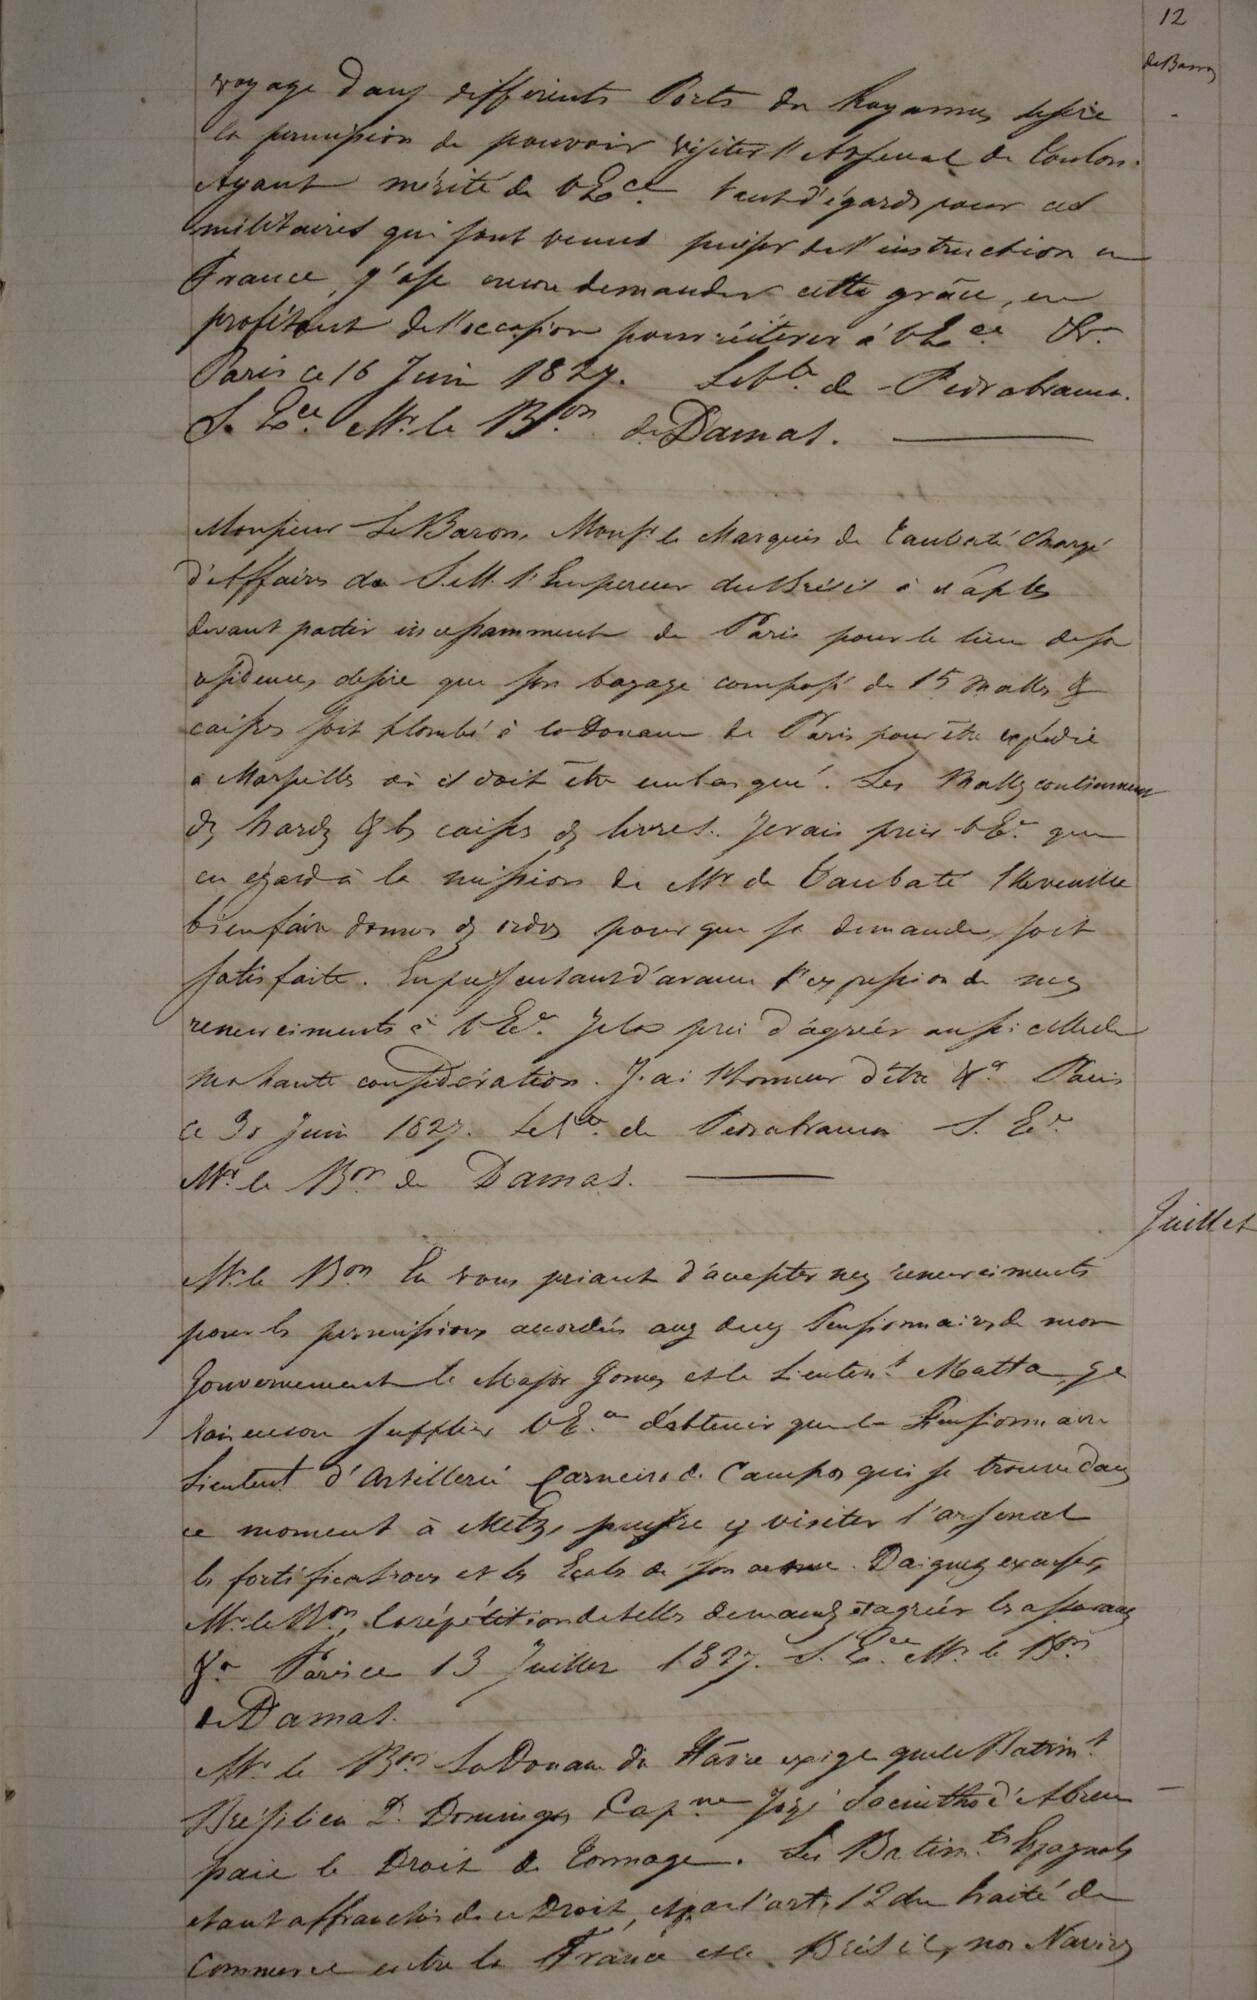 12
de Barros
voyage dans differents Ports du Royaume, desire
la permission de pouvoir visiter l'Arsenal de Toulon.
Ayant mérité de V Ece. tant d'égards pour ces
militaires qui sont venus puiser de l'instruction en
France, j'ose encore demander cette grâce, en
profitant de l'occasion pour réiterer à V Ece. &a.
Paris ce 16 Juin 1827. Le Vte. de Pedrabranca.
S. Ece. Mr. le Bon. de Damas.
Monsieur Le Baron, Monsr. le Marquis de Taubaté Chargé
d'Affaires de S. M. l'Empereur du Brésil à Naples
devant partir incessamment de Paris pour le lieu de sa
residence, desire que son bagage composé de 15 malles &
caisses soit plombé à la Douane de Paris pour être expédié
a Marseille où il doit être embarqué. Les Malles contiennent
des hardes & les caisses des livres. Je vais prier V Ee. que
eu égard à la mission de Mr de Taubaté Elle veuille
bien faire donner des ordres pour que sa demande soit
satisfaite. En présentant d'avance l'expression de mes
remerciments à V Ee. Je la prie d'agréer aussi celle de
ma haute considération. J'ai l'honneur d'être &a. Paris
ce 30 Juin 1827. Le Vte. de Pedrabranca S. Ee.
Mr. le Bon. de Damas.
Juillet
Mr. le Bon En vous priant d'accepter mes remerciments
pour les permissions accordées aux deux Pensionnaires de mon
Gouvernement le Major Gomes et le Lieutent. Matta je
vais encore supplier V E.a d'obtenir que le Pensionnaire
Lieutent d'Artillerie Carneiro de Campos qui se trouve dans
ce moment à Metz, puisse y visiter l'arsenal
les fortifications et les Ecoles de son arme. Daignez excuser,
Mr. le Bon, la répétition de telles demandes et agréer les assurances
&a Paris ce 13 Juillet 1827. S. Ece. Mr. le Bon
de Damas.
Mr. le Bon La Douane du Hâvre exige que le Batimt.
Bresilien D. Domingos Capne José Jacintho d'Abreu
paie le Droit de Tonnage. Les Batimts. Espagnols
étant affranchis de ce Droit, et par l'art. 12 du traité de
Commerce entre la France et le Brésil, nos Navires